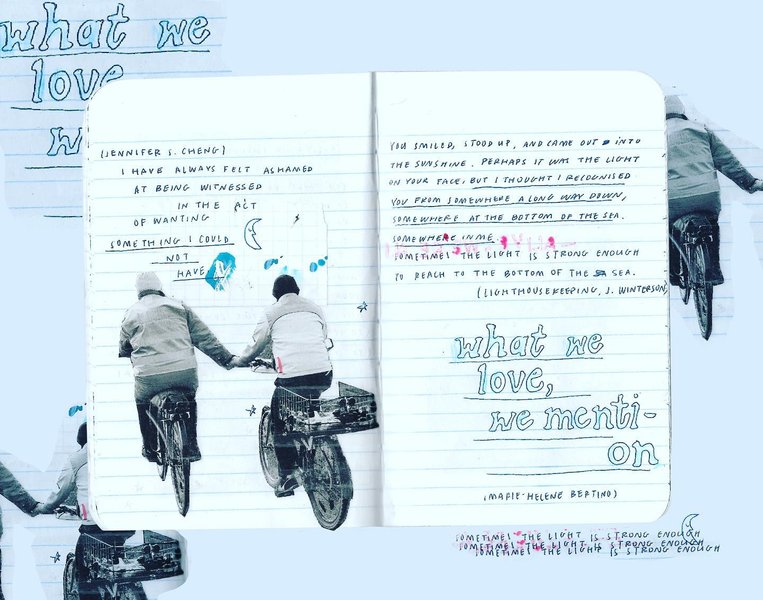 what we
love
w
(JENNIFER S. CHENG)
I HAVE ALWAYS FELT ASHAMED
AT BEING WITNESSED
IN THE ACT
OF WANTING
SOMETHING I COULD
NOT
HAVE
YOU SMILED, STOOD UP, AND CAME OUT INTO
THE SUNSHINE. PERHAPS IT WAS THE LIGHT
ON YOUR FACE, BUT I THOUGHT I RECOGNISED
YOU FROM SOMEWHERE A LONG WAY DOWN,
SOMEWHERE AT THE BOTTOM OF THE SEA.
SOMEWHERE IN ME.
SOMETIMES THE LIGHT IS STRONG ENOUGH
TO REACH TO THE BOTTOM OF THE SEA.
(LIGHTHOUSEKEEPING, J. WINTERSON)
what we
love,
we menti-
on
(MARIE-HELENE BERTINO)
SOMETIMES THE LIGHT IS STRONG ENOUGH
SOMETIMES THE LIGHT IS STRONG ENOUGH
SOMETIMES THE LIGHT IS STRONG ENOUGH